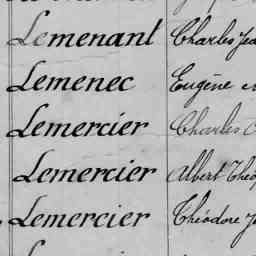 Lemenant Charles Jea
Lemenec Eugène
Lemercier Charles
Lemercier Albert Théop
Lemercier Théodore